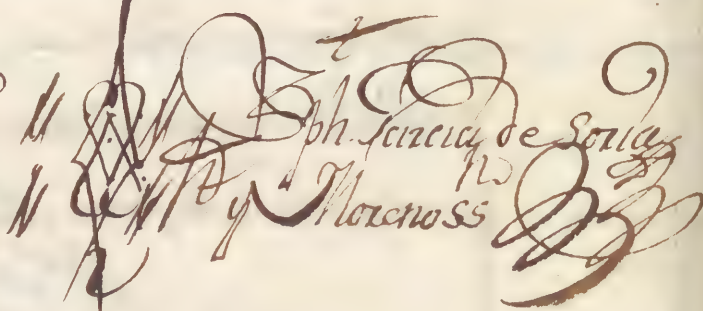 Jph. Garcia de Soria
y Moreno SS